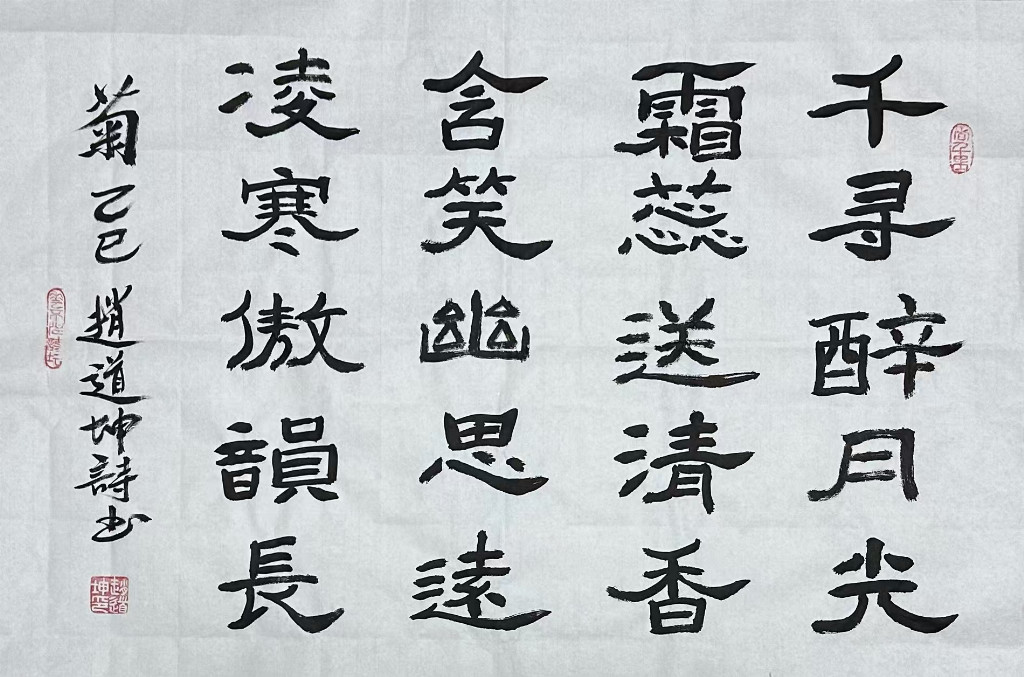 千寻醉月光
霜蕊送清香
含笑幽思远
凌寒傲韻長
菊 乙巳 趙道坤詩书
趙道坤印